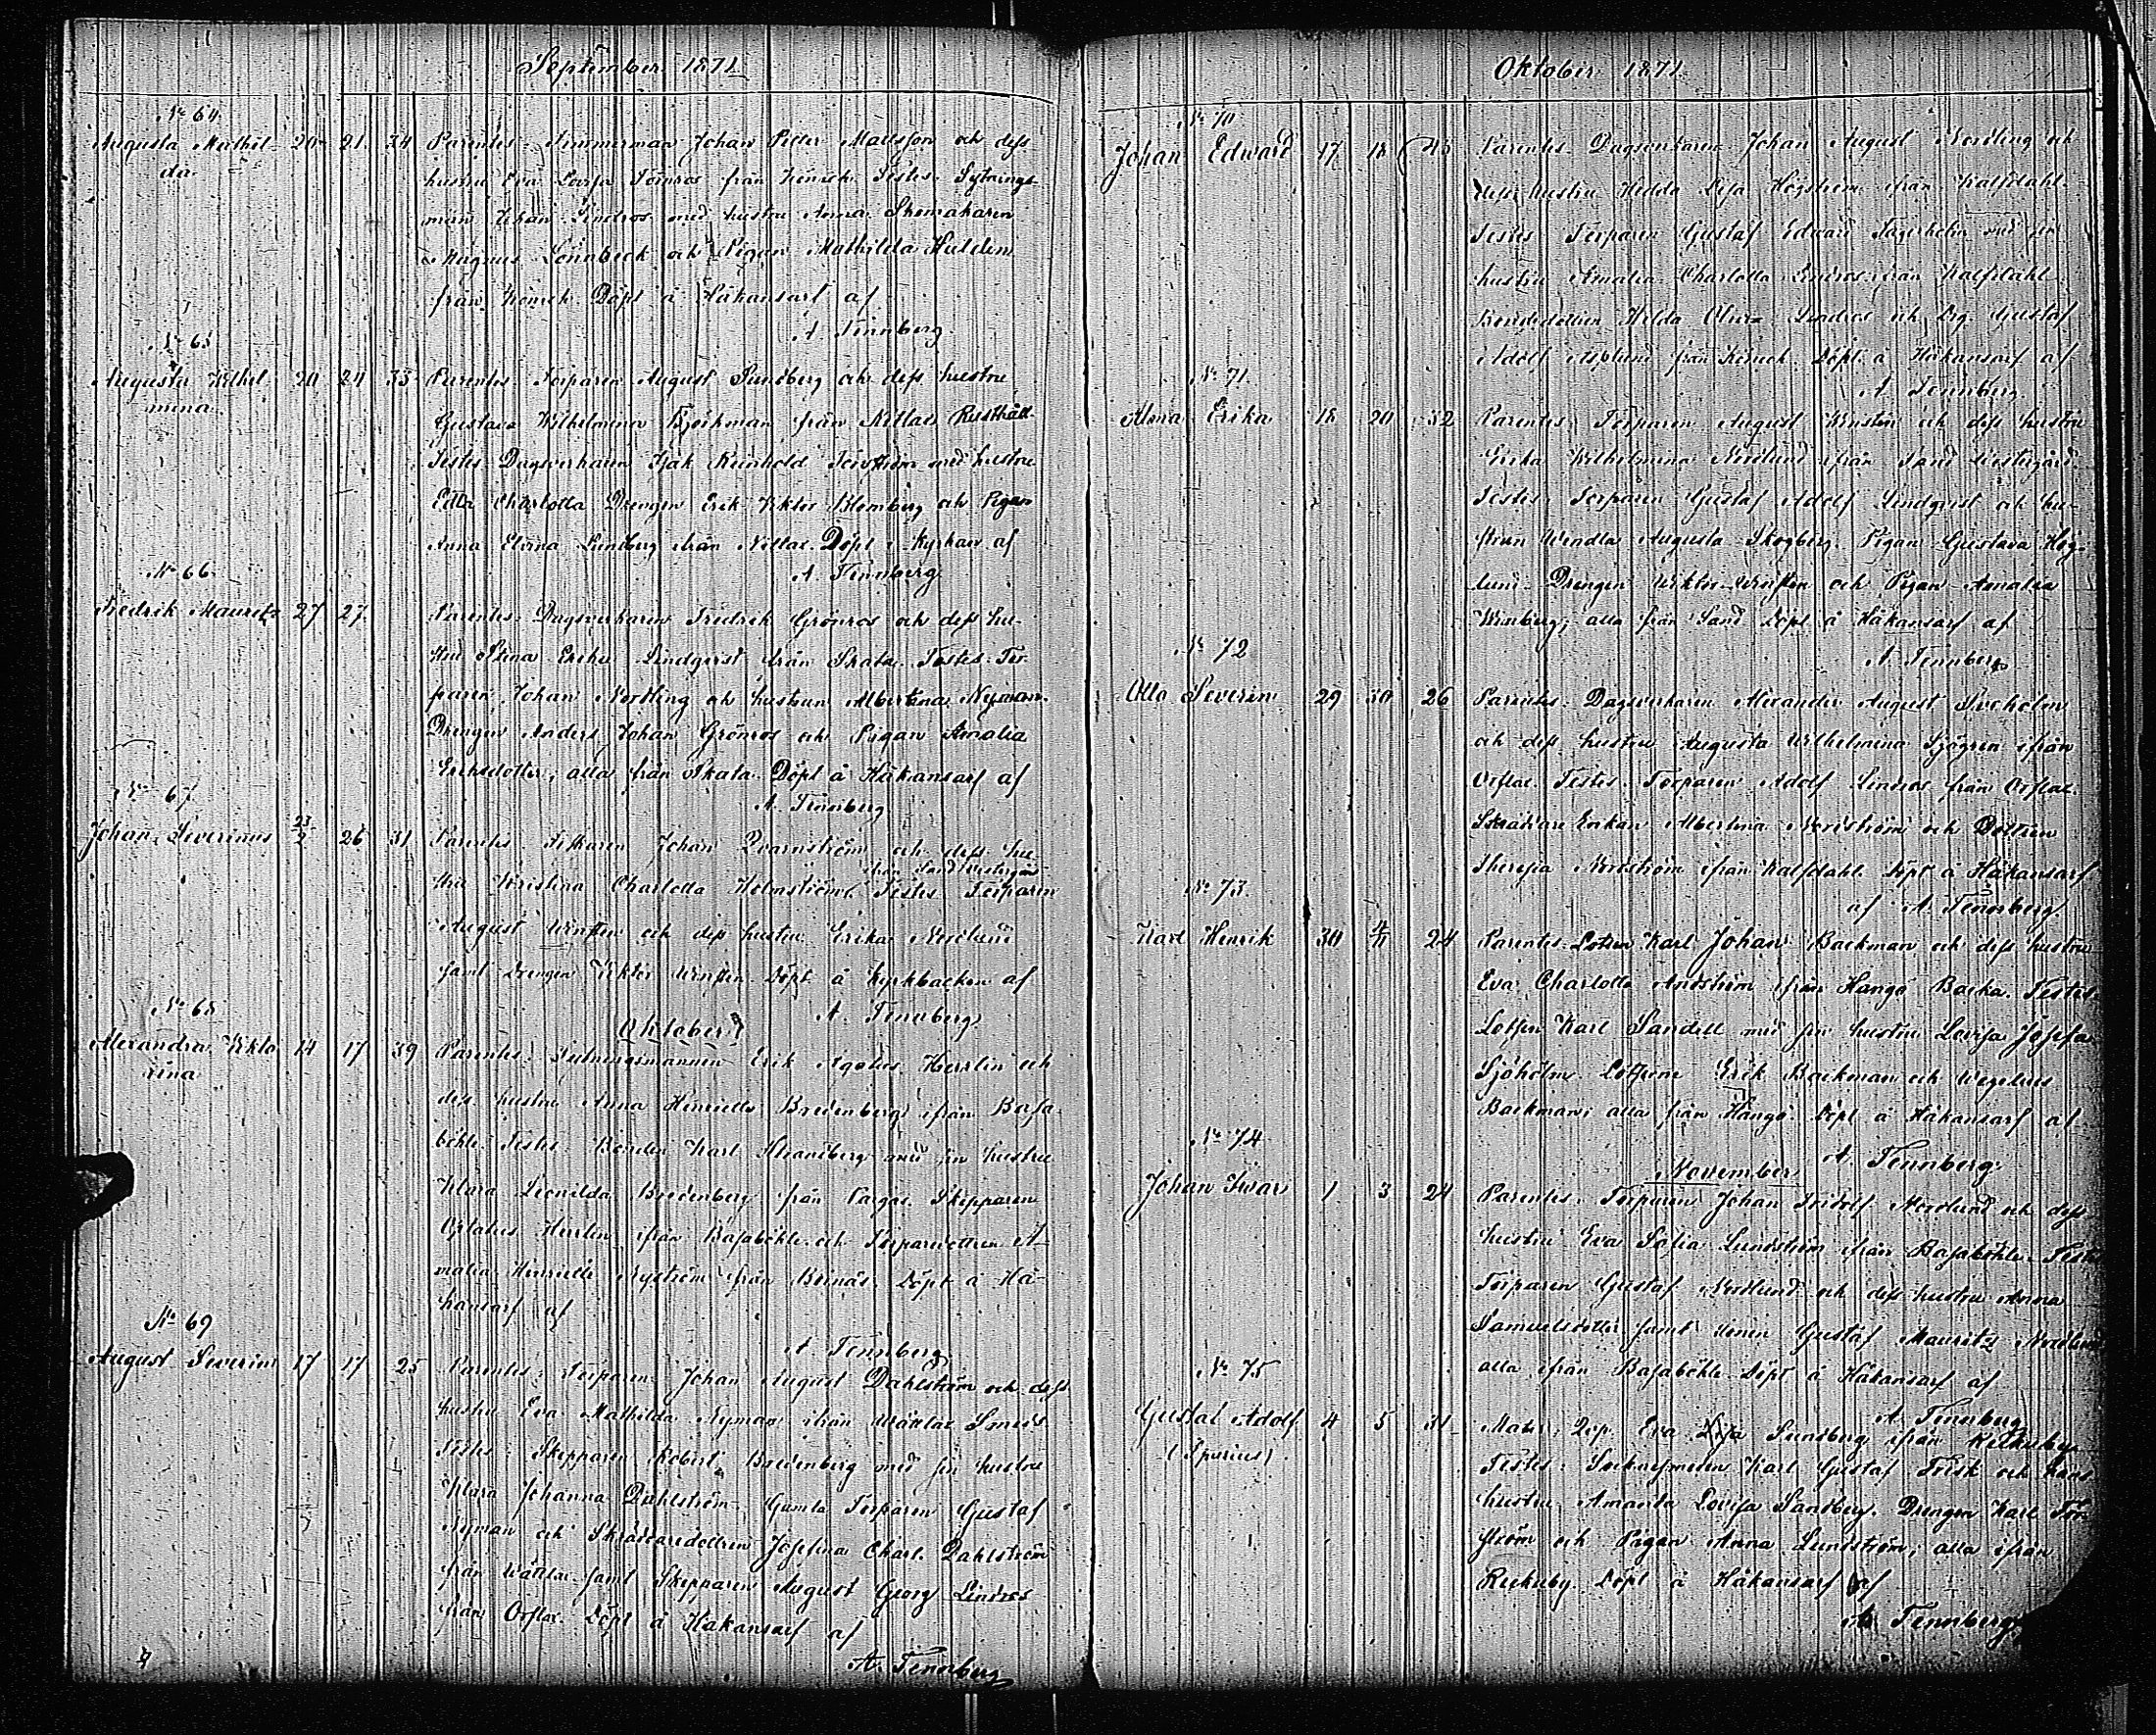 September 1871
No 64.
Augusta Mathil- 20 21 34 Parentes: Timmerman Johan Petter Mattsson och dess
da hustru Eva Lovisa Törnros från Testes: Sytnings-
man Johan Lindros med hustru Anna Skomakaren
Magnus Lönnbeck och Pigan Mathilda Hulden
från Döpt å Håkansarf af
A Tennberg
No 65
Augusta Wilhel- 20 24 33 Parentes Torparen August Sundberg och dess hustru
mina Gustava Wilhelmina Björkman från Nitlax Rusthåll
Testes Dagsverkaren Isak Reinhold med hustru
Charlotta Drengen Erik Viktor Blomberg och Pigan
Anna Elvina Sundberg från Nitlax. Döpt i Kyrkan af
A. Tennberg
No 66.
Fredrik Mauritz 27 27 Parentes. Dagsverkaren Fredrik Grönros och dess hu-
stru Stina Erika Lindqvist från Skata. Testes. Tor-
paren Johan Nordling och hustrun Albertina Nyman
Drengen Anders Johan Grönros och Pigan Amalia
Eriksdotter, alla från Skata. Döpt å Håkansarf af
A. Tennberg
No 67
Johan Severinus 23/2 26 31 Parentes Johan Qvarnström och dess hu-
från Sand Westergård
stru Kristina Charlotta Holmström. Testes Torparen
August Winsten och dess hustru Erika Nordlund
samt Drengen Viktor Winsten Döpt å Kyrkbacken af
A. Tennberg
No 68 Oktober
Alexandra Vikto- 14 17 39 Parentes: Sytningsmannen Erik Herrlin och
rina dess hustru Anna Henrietta Bredenberg ifrån Basa
böhle. Testes: Bonden Karl Strandberg med sin hustru
Klara Leonilda Bredenberg från Pargas. Skepparen
Herrlin ifrån Basaböhle och Torpardottren A-
malia Henriette Nyström från Döpt å Hå-
kansarf af
A Tennberg
No 69
August Severin 17 17 25 Parentes: Torparen Johan August Dahlström och dess
hustru Eva Mathilda Nyman ifrån
Testes: Skepparen Robert Bredenberg med sin hustru
Klara Johanna Dahlström. Gamla Torparen Gustaf
Nyman och Skräddaredottren Josefina Charl. Dahlström
från samt Skepparen August Georg Lindros
från Orslax. Döpt å Håkansarf af
A. Tennberg
Oktober 1871
No 70
Johan Edward 17 18 Parentes Dagsverkaren Johan August Nordling och
dess hustru Hedda Lisa Högström ifrån Kalfdahl.
Testes Torparen Gustaf Edward Fagerholm med sin
hustru Amalia Charlotta Lindros från Kalfdahl
Bondedottren Hilda Lindros och Drg. Gustaf
Adolf Asplund från Döpt å Håkansarf af
A. Tennberg
No 71.
Alma Erika 18 20 32 Parentes: Torparen August Winsten och dess hustru
Erika Wilhelmina Nordlund ifrån Sand Westergård.
Testes. Torparen Gustaf Adolf Lindqvist och hu-
strun Wendla Augusta Skogberg. Pigan Gustava Hög-
lund. Drengen Viktor Winsten och Pigan Amalia
Winberg; alla från Sand Döpt å Håkansarf af
A. Tennberg
No 72
Otto Severin 29 30 26 Parentes: Dagsverkaren Alexander August Sveholm
och dess hustru Augusta Wilhelmina Sjögren ifrån
Orslax. Testes. Torparen Adolf Lindros från Orslax.
Enkan Albertina Nordström och Dottren
Theresia Nordström ifrån Kalfdahl Döpt å Håkansarf
af A. Tennberg
No 73.
Karl Henrik 30 4/11 24 Parentes Lotsen Karl Johan Backman och dess hustru
Eva Charlotta Andström från Hangö Backa. Testes
Lotsen Karl Sandell med sin hustru Lovisa Josefa
Sjöholm. Lotsen Erik Backman och
Backman; alla från Hangö. Döpt å Håkansarf af
A. Tennberg.
No 74 November
Johan Ivar 1 3 24 Parentes. Torparen Johan Fridolf Nordlund och dess
hustru Eva Sofia Lundström ifrån Basaböhle. Testes
Torparen Gustaf Nordlund och dess hustru Anna
Samuelsdotter samt Sonen Gustaf Mauritz Nordlund
alla ifrån Basaböhle Döpt å Håkansarf af
A. Tennberg
No 75
Gustaf Adolf 4 5 31 Mater: Pig. Eva Lisa Sundberg ifrån Rekuby
(Spurius) Testes: Karl Gustaf Frisk och hans
hustru Amanda Lovisa Sandberg. Drengen Karl Tör-
ström och Pigan Anna Lundström; alla ifrån
Rekuby. Döpt å Håkansarf af
A. Tennberg